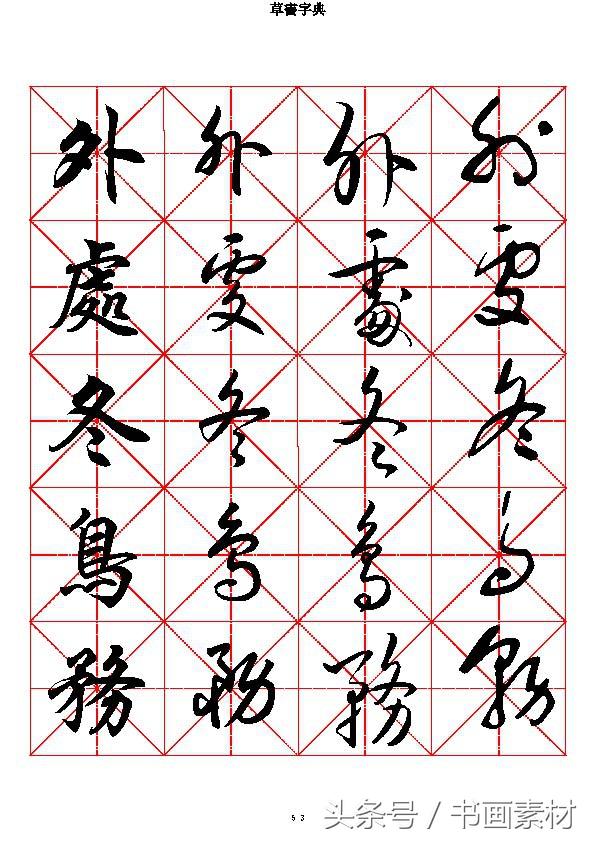 草書字典
外 外 外 外
處 處 處 處
冬 冬 冬 冬
鳥 鳥 鳥 鳥
務 務 務 務
53
头条号 / 书画素材